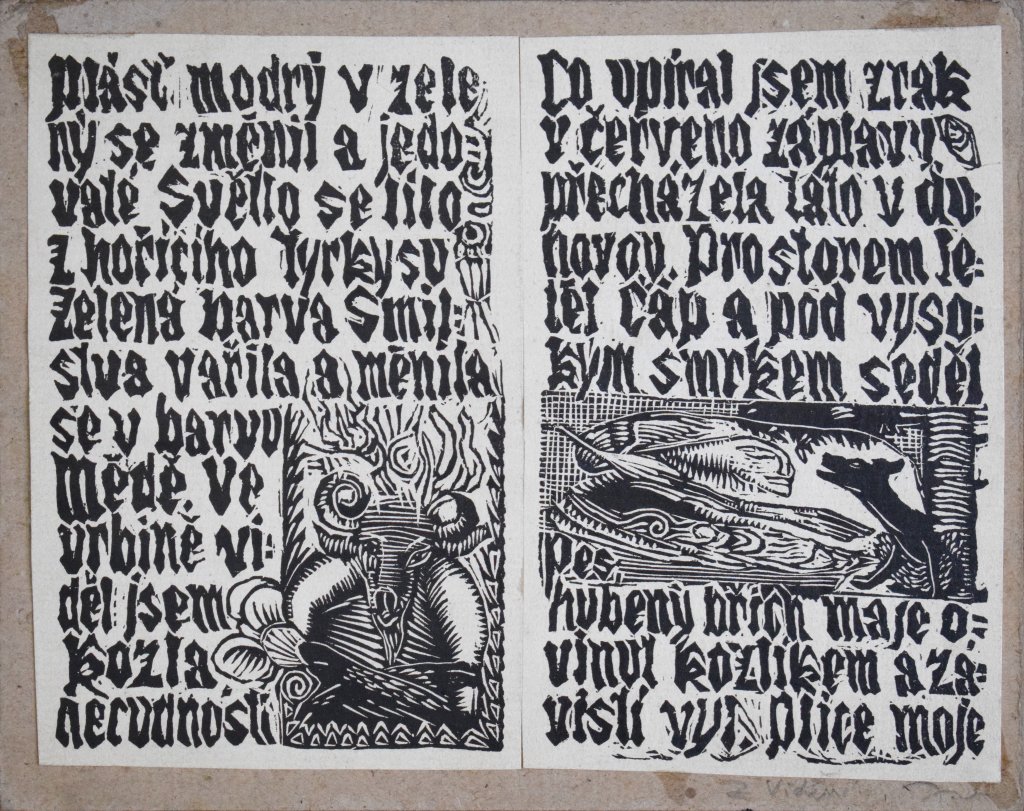 Plášť modrý v zele
ný se změnil a jedo:
vaté Světlo se lilo
z hořícího Tyrkysu
Zelená barva Smil:
stva vařila a měnila
se v barvu
Mědě. Ve
vrbině vi:
děl jsem
Kozla
nerudnosti
Co upíral jsem zrak
v červeno záplavy
přecházela tato v du:
hovou. Prostorem le:
těl Čáp a pod vyso:
kým smrkem seděl
Pes,
hubený břich maje o:
vinut kozlíkem a zá:
visti plíce moje